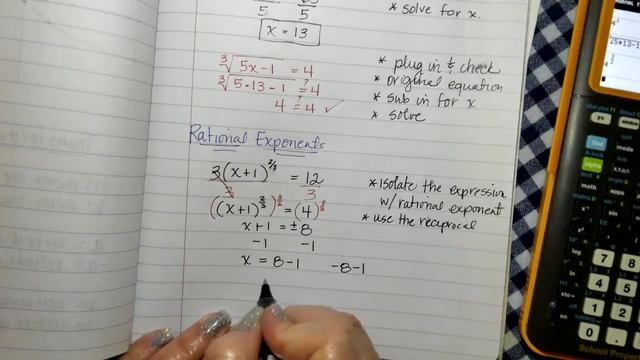 5 5
x = 13
* solve for x.
∛(5x-1) = 4
∛(5•13-1) ?= 4
4 ?= 4 ✓
* plug in & check
* original equation
* sub in for x
* solve
Rational Exponents
3(x+1)^(2/3) = 12
3 3
((x+1)^(2/3))^(3/2) = (4)^(3/2)
x+1 = ±8
-1 -1
x = 8-1 -8-1
* isolate the expression
w/rational exponent
* use the reciprocal